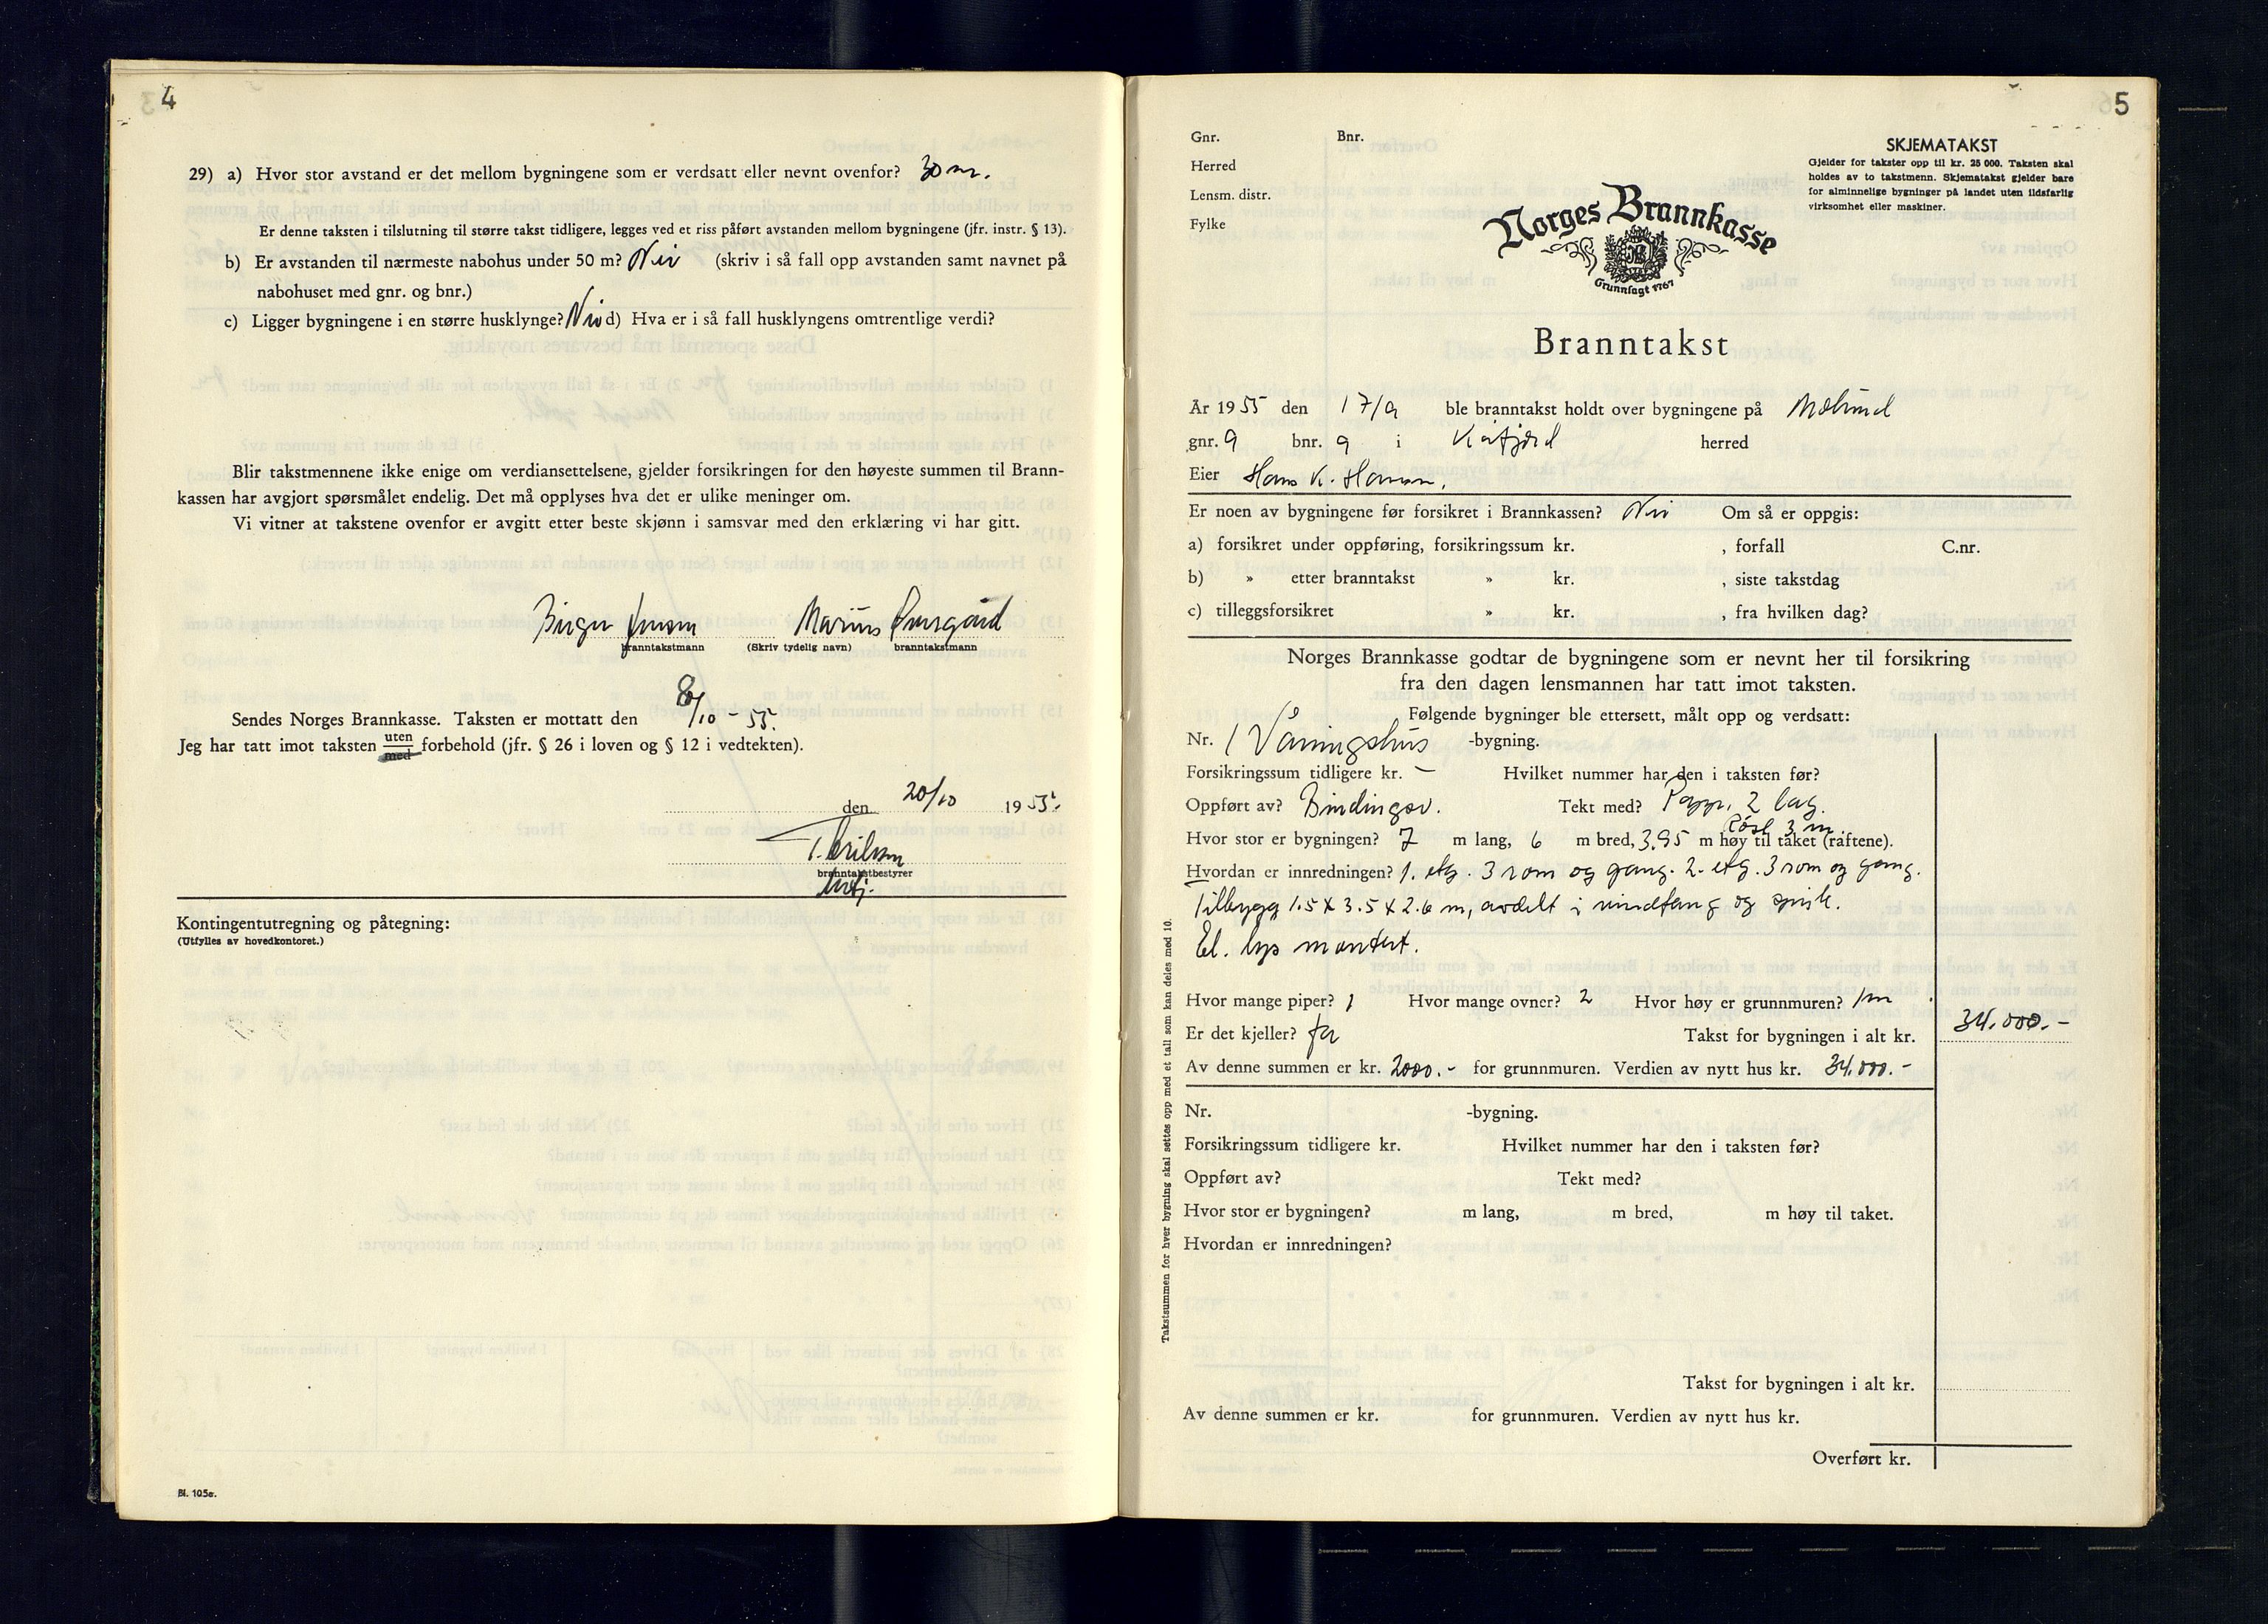 4
29) a) Hvor stor avstand er det mellom bygningene som er verdsatt eller nevnt ovenfor? 30 m.
Er denne taksten i tilslutning til større takst tidligere, legges ved et riss påført avstanden mellom bygningene (jfr. instr. § 13).
b) Er avstanden til nærmeste nabohus under 50 m? Nei (skriv i så fall opp avstanden samt navnet på
nabohuset med gnr. og bnr.)
c) Ligger bygningene i en større husklynge? Nei d) Hva er i så fall husklyngens omtrentlige verdi?
Blir takstmennene ikke enige om verdiansettelsene, gjelder forsikringen for den høyeste summen til Brann-
kassen har avgjort spørsmålet endelig. Det må opplyses hva det er ulike meninger om.
Vi vitner at takstene ovenfor er avgitt etter beste skjønn i samsvar med den erklæring vi har gitt.
Birger Jensen Marius
branntakstmann (Skriv tydelig navn) branntakstmann
Sendes Norges Brannkasse. Taksten er mottatt den 8/10 - 55.
Jeg har tatt imot taksten uten med forbehold (jfr. § 26 i loven og § 12 i vedtekten).
den 20/10 1955.
branntakstbestyrer
Kontingentutregning og påtegning:
(Utfylles av hovedkontoret.)
Bl. 105a.
5
Gnr. Bnr.
Herred
Lensm. distr.
Fylke
SKJEMATAKST
Gjelder for takster opp til kr. 25 000. Taksten skal
holdes av to takstmenn. Skjematakst gjelder bare
for alminnelige bygninger på landet uten ildsfarlig
virksomhet eller maskiner.
Norges Brannkasse
Grunnlagt 1767
Branntakst
År 1955 den 17/9 ble branntakst holdt over bygningene på
gnr. 9 bnr. 9 i Kåfjord herred
Eier Hans K. Hansen.
Er noen av bygningene før forsikret i Brannkassen? Nei Om så er oppgis:
a) forsikret under oppføring, forsikringssum kr. , forfall C.nr.
b) » etter branntakst » kr. , siste takstdag
c) tilleggsforsikret » kr. , fra hvilken dag?
Norges Brannkasse godtar de bygningene som er nevnt her til forsikring
fra den dagen lensmannen har tatt imot taksten.
Følgende bygninger ble ettersett, målt opp og verdsatt:
Nr. 1 Våningshus -bygning.
Forsikringssum tidligere kr. – Hvilket nummer har den i taksten før?
Oppført av? Bindingsv. Tekt med? Papp, 2 lag.
Røst 3 m
Hvor stor er bygningen? 7 m lang, 6 m bred, 3.95 m høy til taket (raftene).
Hvordan er innredningen? 1. etg. 3 rom og gang. 2. etg. 3 rom og gang.
Tilbygg 1.5 x 3.5 x 2.6 m, avdelt i vindfang og
El. lys montert.
Hvor mange piper? 1 Hvor mange ovner? 2 Hvor høy er grunnmuren? 1 m
Er det kjeller? ja Takst for bygningen i alt kr. 34.000.-
Av denne summen er kr. 2000.- for grunnmuren. Verdien av nytt hus kr. 34.000.-
Nr. -bygning.
Forsikringssum tidligere kr. Hvilket nummer har den i taksten før?
Oppført av? Tekt med?
Hvor stor er bygningen? m lang, m bred, m høy til taket.
Hvordan er innredningen?
Takst for bygningen i alt kr.
Av denne summen er kr. for grunnmuren. Verdien av nytt hus kr.
Overført kr.
Takstsummen for hver bygning skal settes opp med et tall som kan deles med 10.